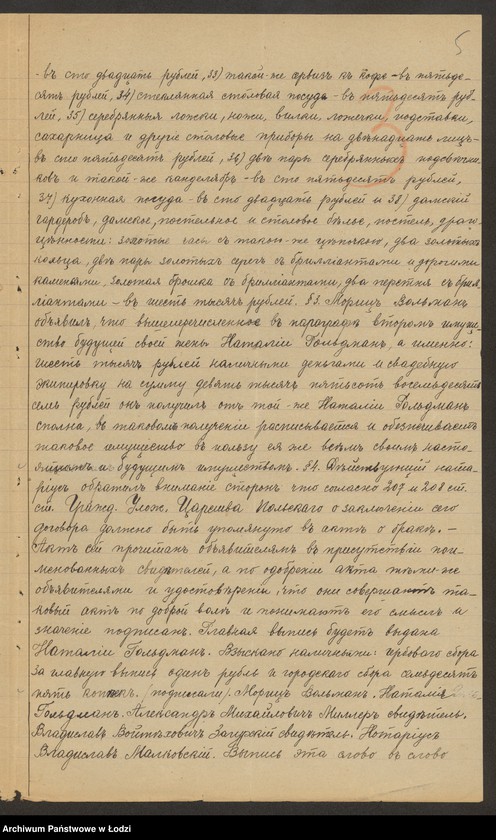 5
-въ сто двадцать рублей, 33) такой-же сервизъ къ кофе-въ пятьде-
сятъ рублей, 34) стеклянная столовая посуда-въ пятьдесятъ руб-
лей, 35) серебрянныя ложки, ножи, вилки, ложечки, подставки,
сахарница и другіе столовые приборы на двѣнадцать лицъ-
въ сто пятьдесятъ рублей, 36) двѣ пары серебрянныхъ подсвѣчни-
ковъ и такой-же канделябръ-въ сто пятьдесятъ рублей,
37) кухонная посуда-въ сто двадцать рублей и 38) дамскій
гардеробъ, дамское, постельное и столовое бѣлье, постель, драго-
цѣнности: золотые часы съ такою-же цѣпочкою, два золотыхъ
кольца, двѣ пары золотыхъ серегъ съ брилліантами и дорогими
камнями, золотая брошка съ брилліантами, два перстня съ брил-
ліантами-въ шесть тысячъ рублей. §3. Морицъ Вольманъ
объявилъ, что вышеперечисленное въ параграфѣ второмъ имуще-
ство будущей своей жены Наталіи Гольдманъ, а именно:
шесть тысячъ рублей наличными деньгами и свадебную
экипировку на сумму девять тысячъ пятьсотъ восемьдесятъ
семь рублей онъ получилъ отъ той-же Наталіи Гольдманъ
сполна, въ таковомъ полученіи расписывается и обезпечиваетъ
таковое имущество въ пользу ея же всѣмъ своимъ насто-
ящимъ и будущимъ имуществомъ. §4. Дѣйствующій нота-
ріусъ обратилъ вниманіе сторонъ что согласно 207 и 208 ст.
ст. Гражд. Улож. Царства Польскаго о заключеніи сего
договора должно быть упомянуто въ актѣ о бракѣ.-
Актъ сей прочитанъ объявителямъ въ присутствіи пои-
менованныхъ свидѣтелей, а по одобреніи акта тѣми-же
объявителями и удостовѣреніи, что они совершаютъ та-
ковый актъ по доброй волѣ и понимаютъ его смыслъ и
значеніе подписанъ. Главная выпись будетъ выдана
Наталіи Гольдманъ. Взыскано наличными: гербоваго сбора
за главную выпись одинъ рубль и городскаго сбора семьдесятъ
пять копѣекъ. (подписали). Морицъ Вольманъ. Наталія
Гольдманъ. Александръ Михайловичъ Миллеръ свидѣтель.
Владиславъ Войтѣховичъ Загурскій свидѣтель. Нотаріусъ
Владиславъ Малковскій. Выпись эта слово въ слово
Archiwum Państwowe w Łodzi